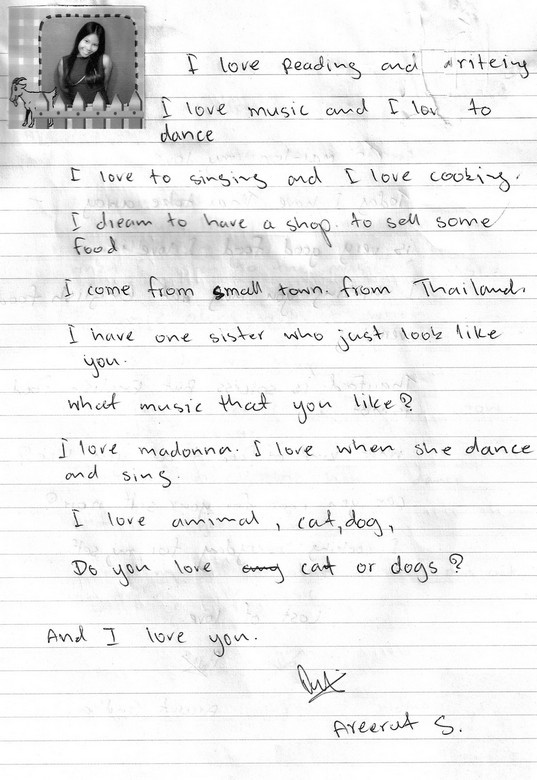 I love reading and writeing
I love music and I love to
dance
I love to singing and I love cooking.
I dream to have a shop. to sell some
food
I come from small town. from Thailand.
I have one sister who just look like
you.
what music that you like?
I love madonna. I love when she dance
and sing.
I love amimal, cat, dog,
Do you love cat or dogs?
And I love you.
Areerat S.